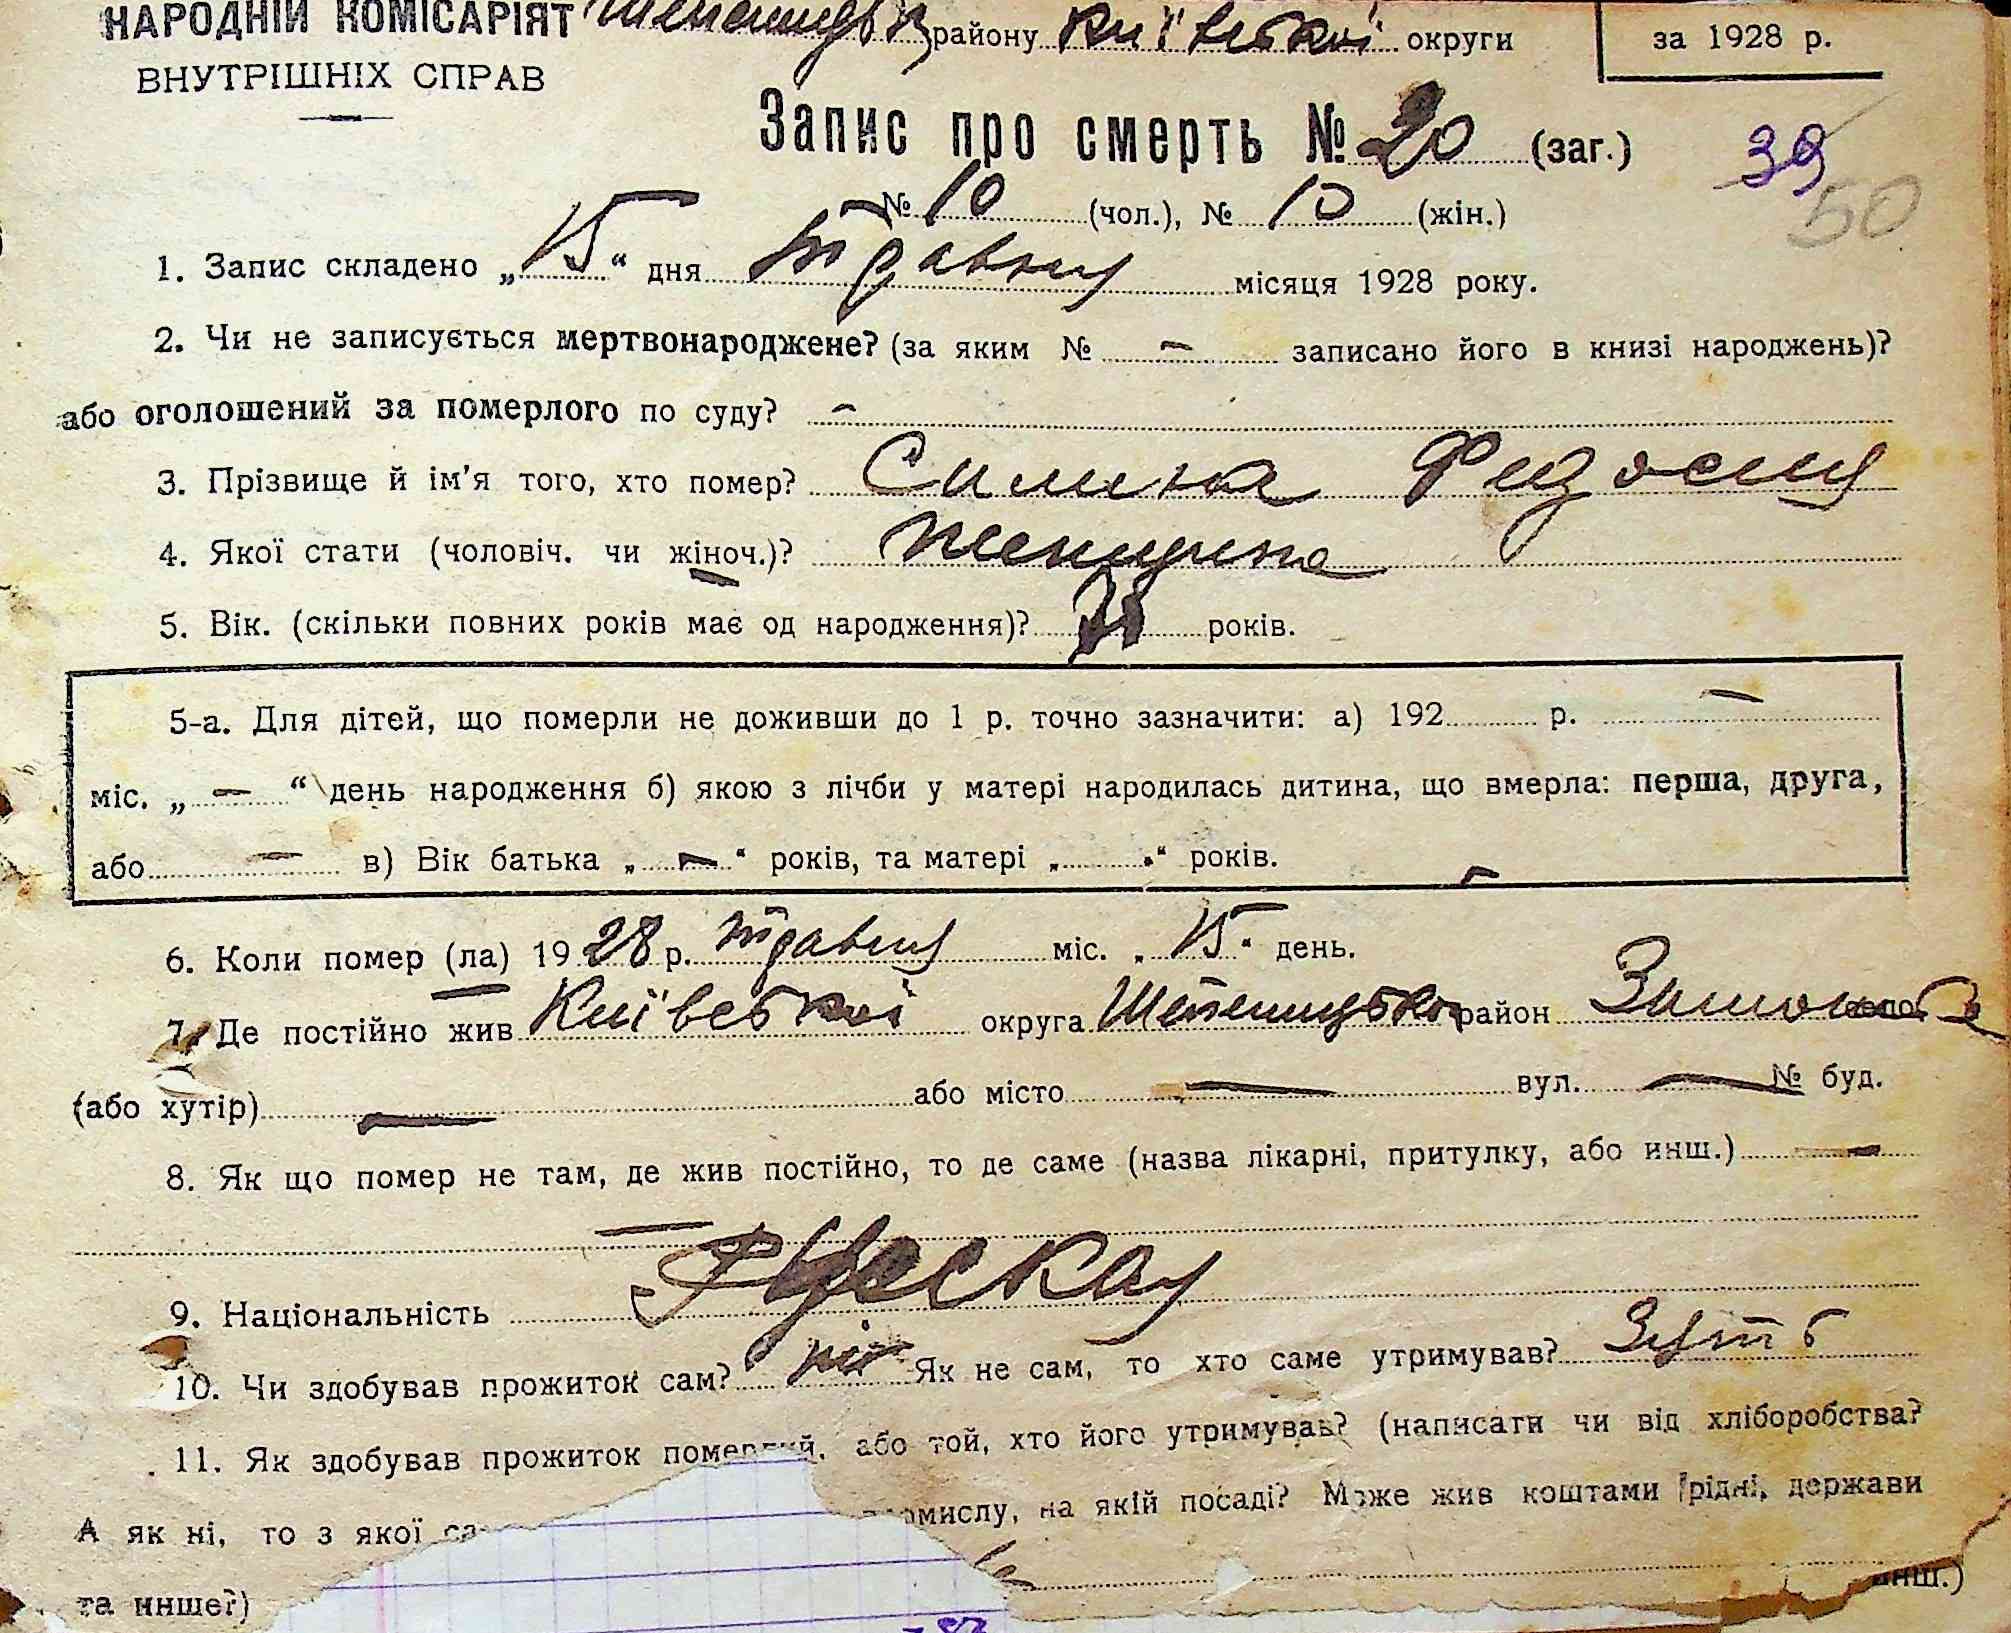 НАРОДНІЙ КОМІСАРІЯТ району Київської округи за 1928 р.
ВНУТРІШНІХ СПРАВ
Запис про смерть № 20 (заг.) 39
№ 10 (чол.), № 10 (жін.) 50
1. Запис складено „ 15 “ дня травня місяця 1928 року.
2. Чи не записується мертвонароджене? (за яким № — записано його в книзі народжень)?
або оголошений за померлого по суду? —
3. Прізвище й ім'я того, хто помер? Силина Федосия
4. Якої стати (чоловіч. чи жіноч.)? женщина
5. Вік. (скільки повних років має од народження)? років.
5-а. Для дітей, що померли не доживши до 1 р. точно зазначити: а) 192 р. —
міс. „ — “ день народження б) якою з лічби у матері народилась дитина, що вмерла: перша, друга,
або — в) Вік батька „ — “ років, та матері „ “ років. —
6. Коли помер (ла) 1928 р. травня міс. „ 15 “ день.
7. Де постійно жив Київської округа район село
(або хутір) — або місто — вул. — № буд.
8. Як що помер не там, де жив постійно, то де саме (назва лікарні, притулку, або инш.) —
—
9. Національність Руская
10. Чи здобував прожиток сам? ні Як не сам, то хто саме утримував? Зять
11. Як здобував прожиток померлий, або той, хто його утримував? (написати чи від хліборобства?
А як ні, то з якої промислу, на якій посаді? Може жив коштами рідні, держави
та инше?) инш.)